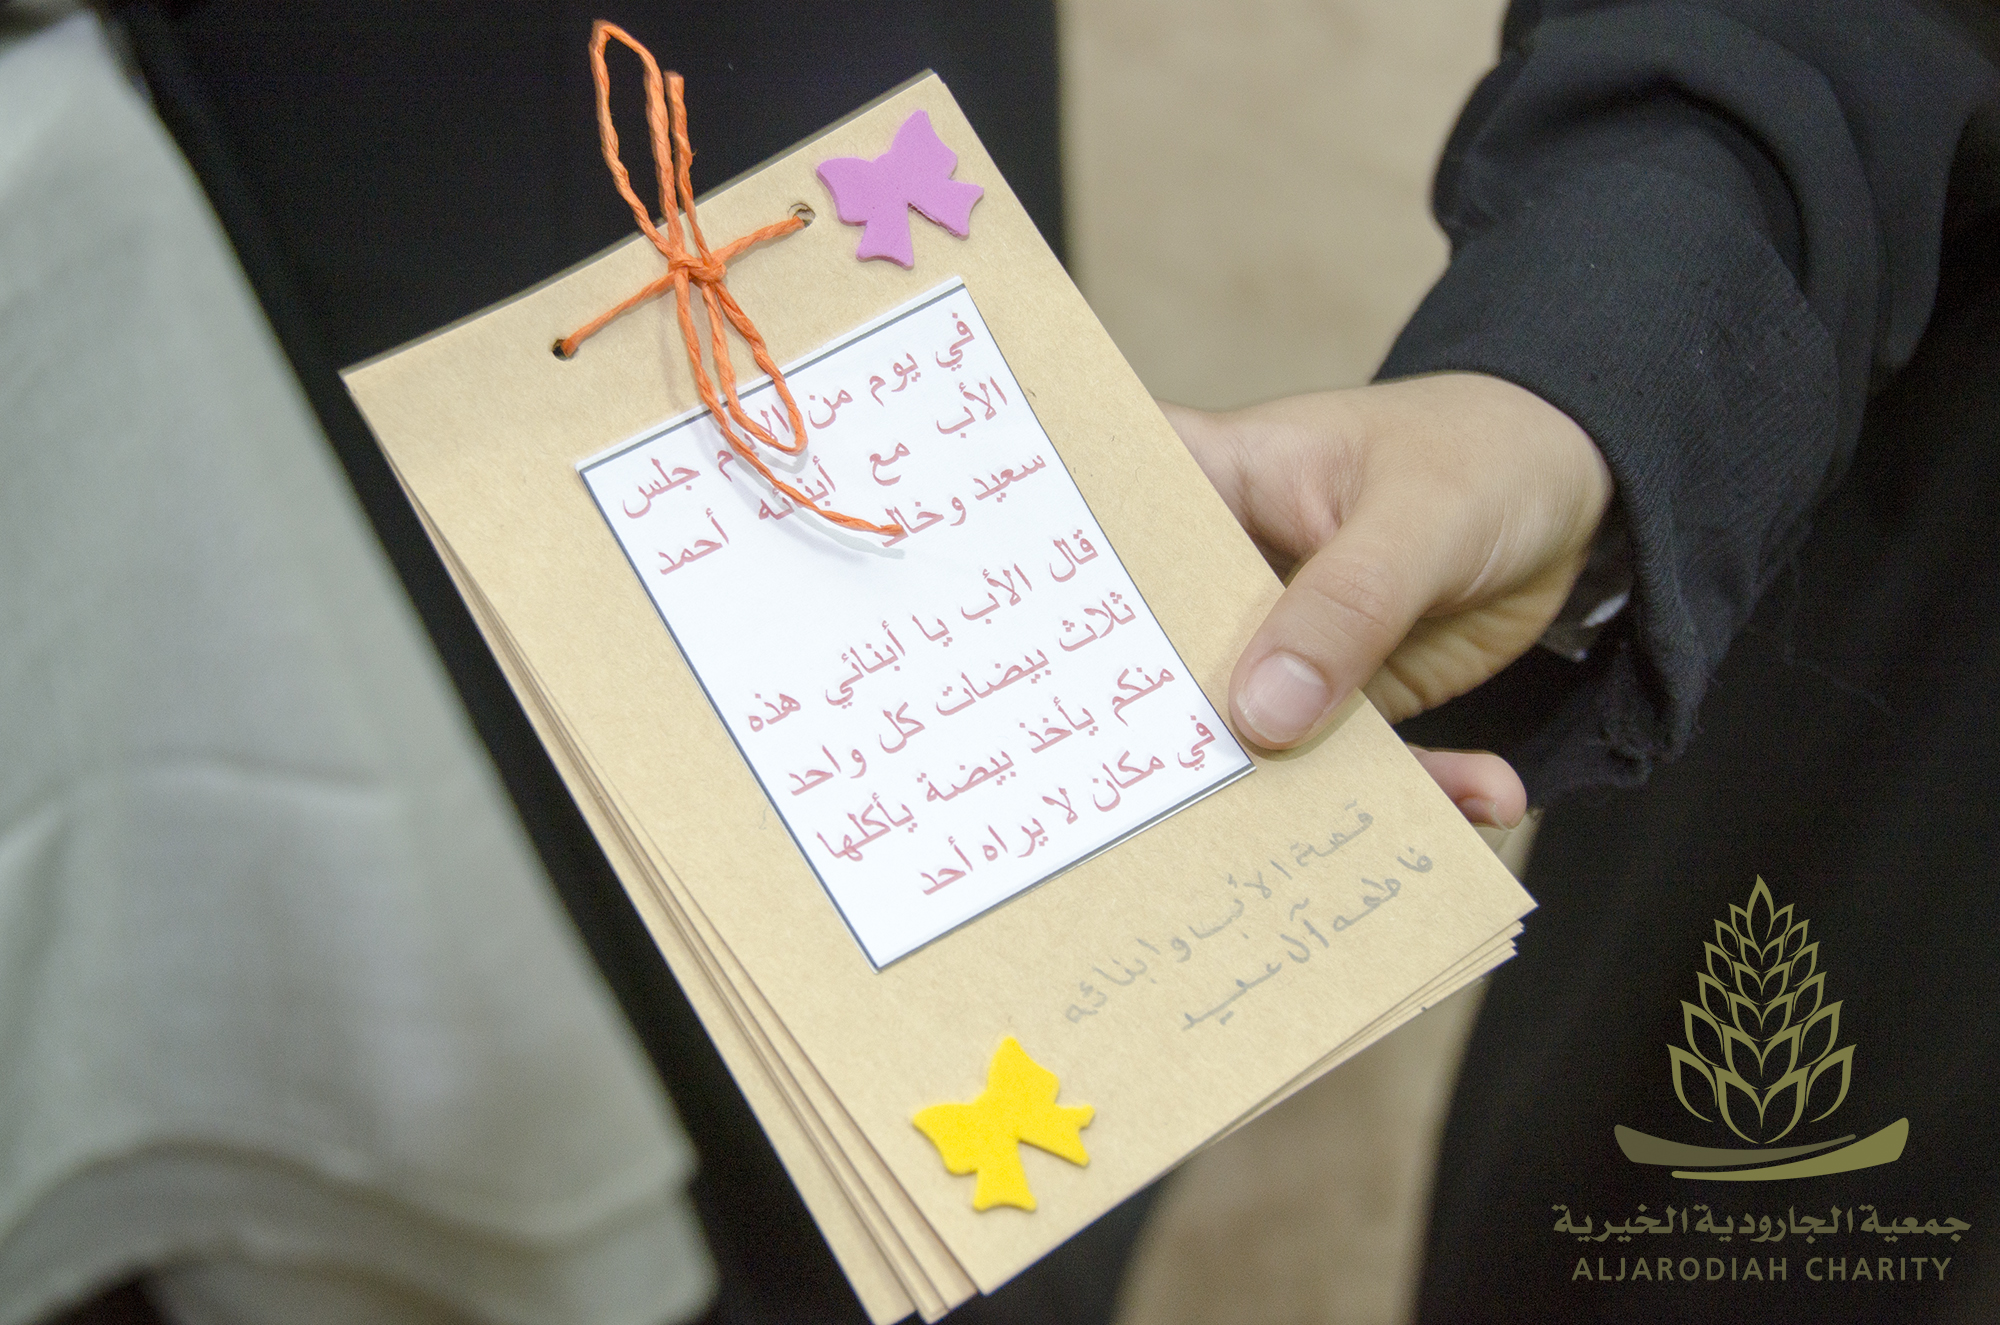 في يوم من الأيام جلس
الأب مع أبنائه أحمد
سعيد وخالد
قال الأب يا أبنائي هذه
ثلاث بيضات كل واحد
منكم يأخذ بيضة يأكلها
في مكان لا يراه أحد
قصة الأب وابنائه
فاطمه آل عبيد
جمعية الجارودية الخيرية
ALJARODIAH CHARITY